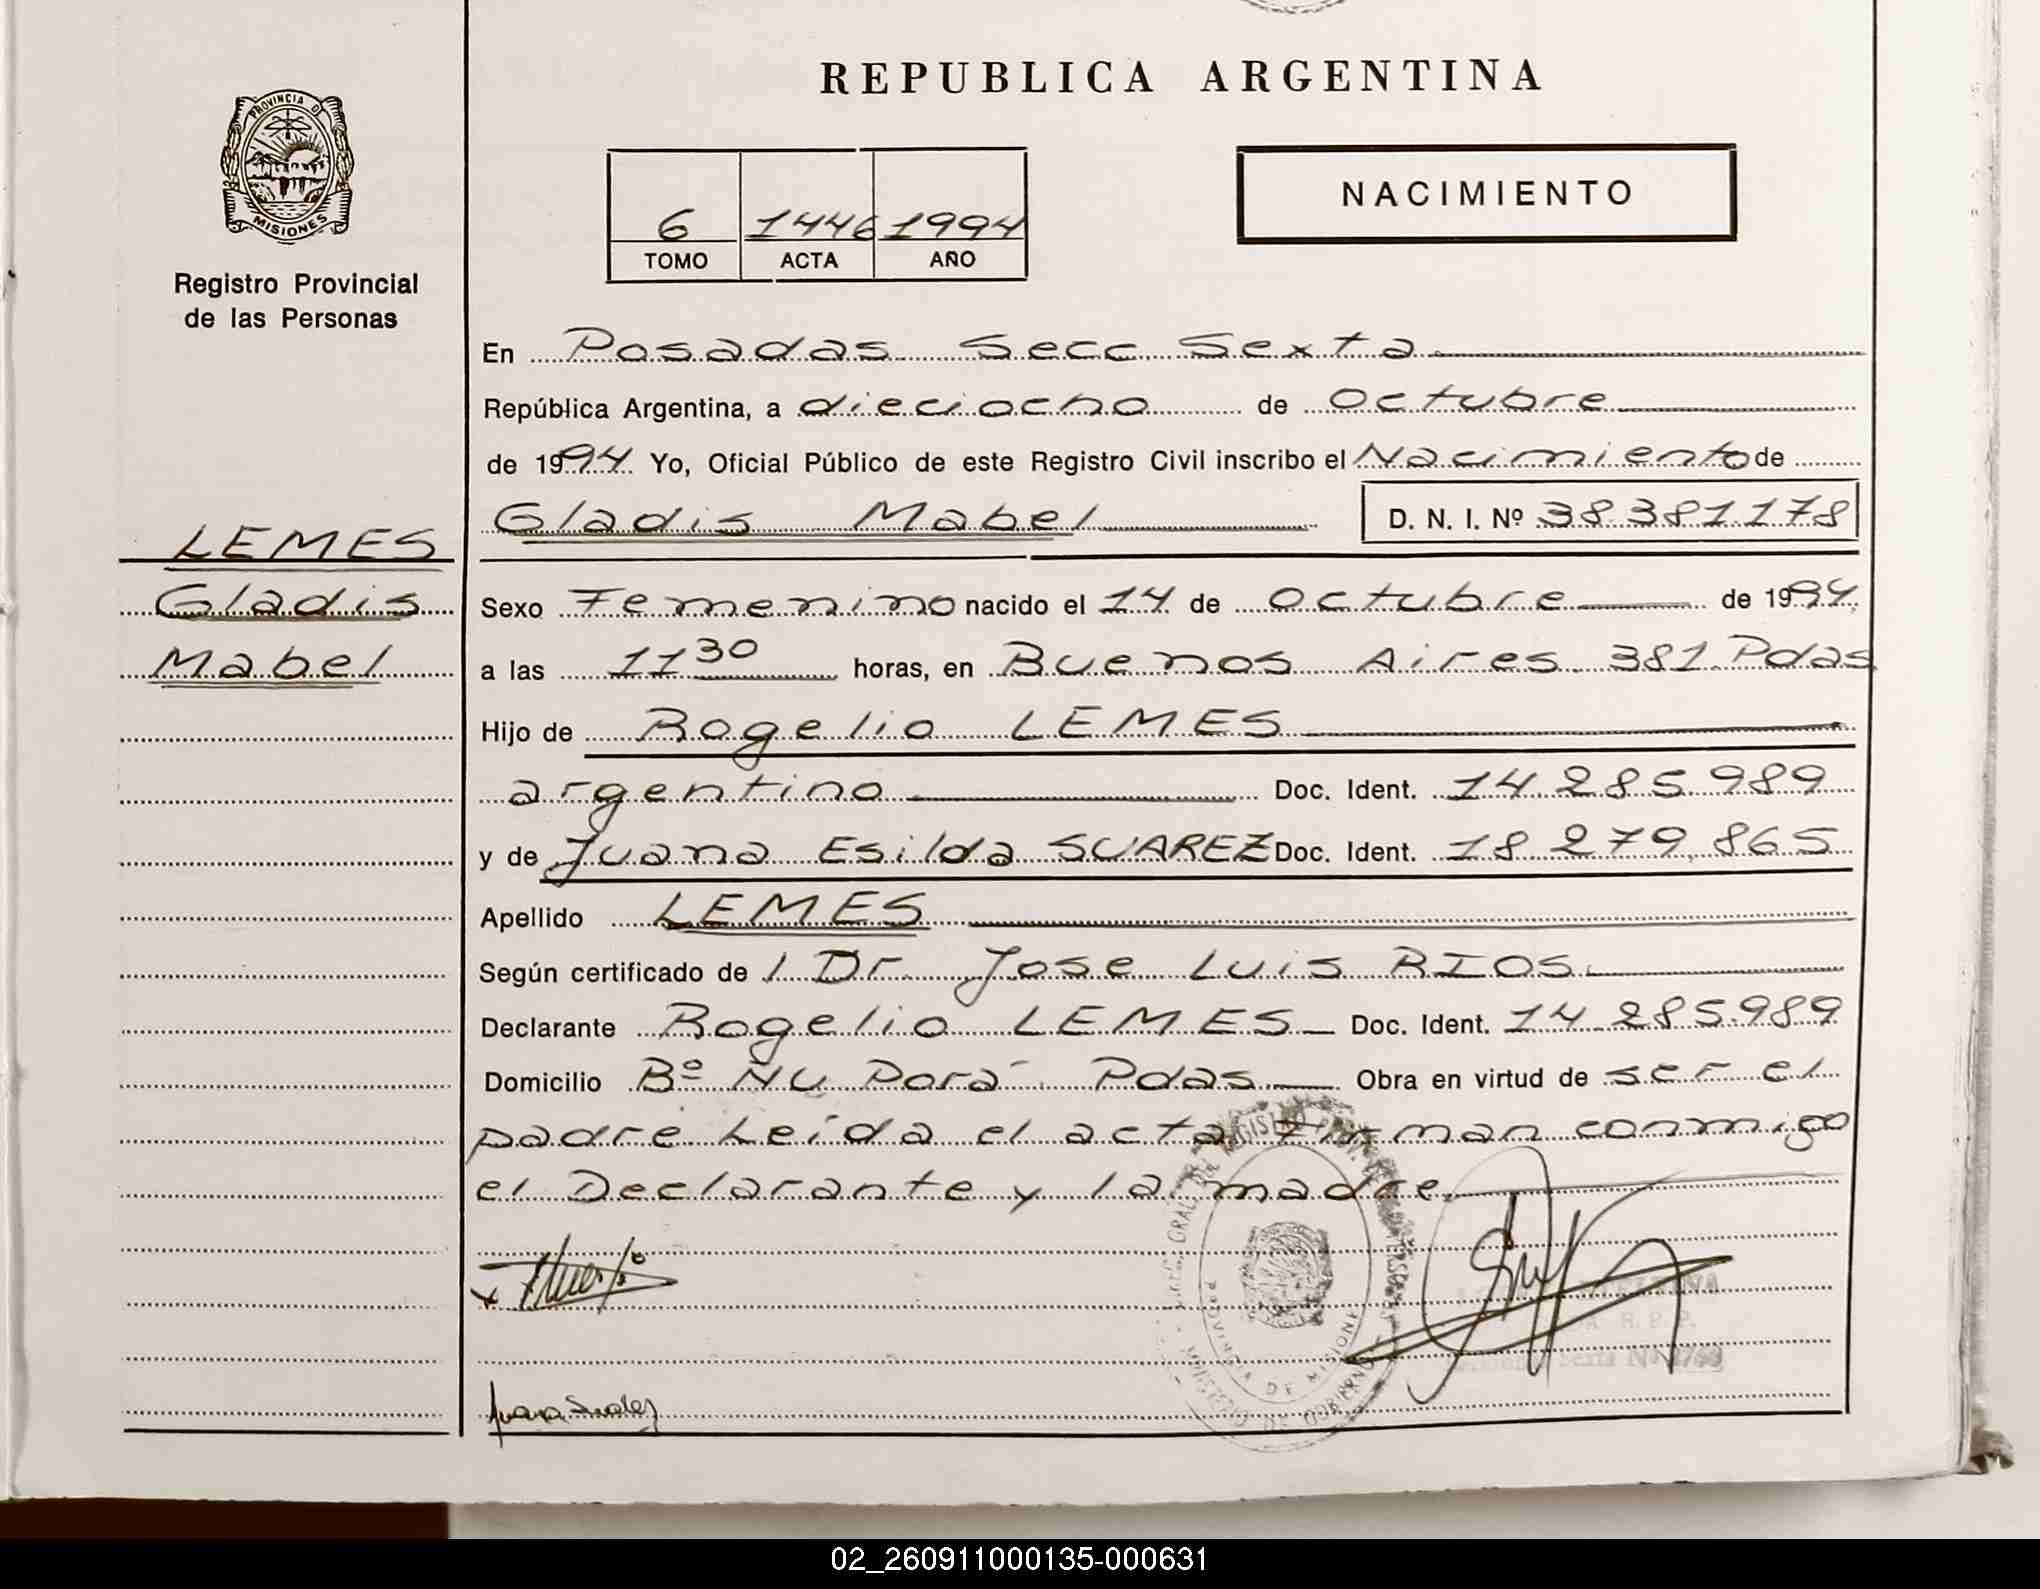 PROVINCIA DE
MISIONES
Registro Provincial
de las Personas
LEMES
Gladis
Mabel
REPUBLICA ARGENTINA
6 1446 1994
TOMO ACTA AÑO
NACIMIENTO
En Posadas Secc Sexta
República Argentina, a dieciocho de Octubre
de 1994 Yo, Oficial Público de este Registro Civil inscribo el Nacimiento de
Gladis Mabel D. N. I. Nº 38.381.178
Sexo Femenino nacido el 14 de Octubre de 1994
a las 11 30 horas, en Buenos Aires 381 Pdas
Hijo de Rogelio LEMES
argentino Doc. Ident. 14.285.989
y de Juana Esilda SUAREZ Doc. Ident. 18.279.865
Apellido LEMES
Según certificado de l Dr. Jose Luis RIOS
Declarante Rogelio LEMES Doc. Ident. 14.285.989
Domicilio Bº Ñu Porá Pdas Obra en virtud de ser el
padre Leída el acta Firman conmigo
el Declarante y la madre
PROVINCIA DE MISIONES
MINISTERIO DE GOBIERNO
R. P. P.
Juana Suarez
02_260911000135-000631